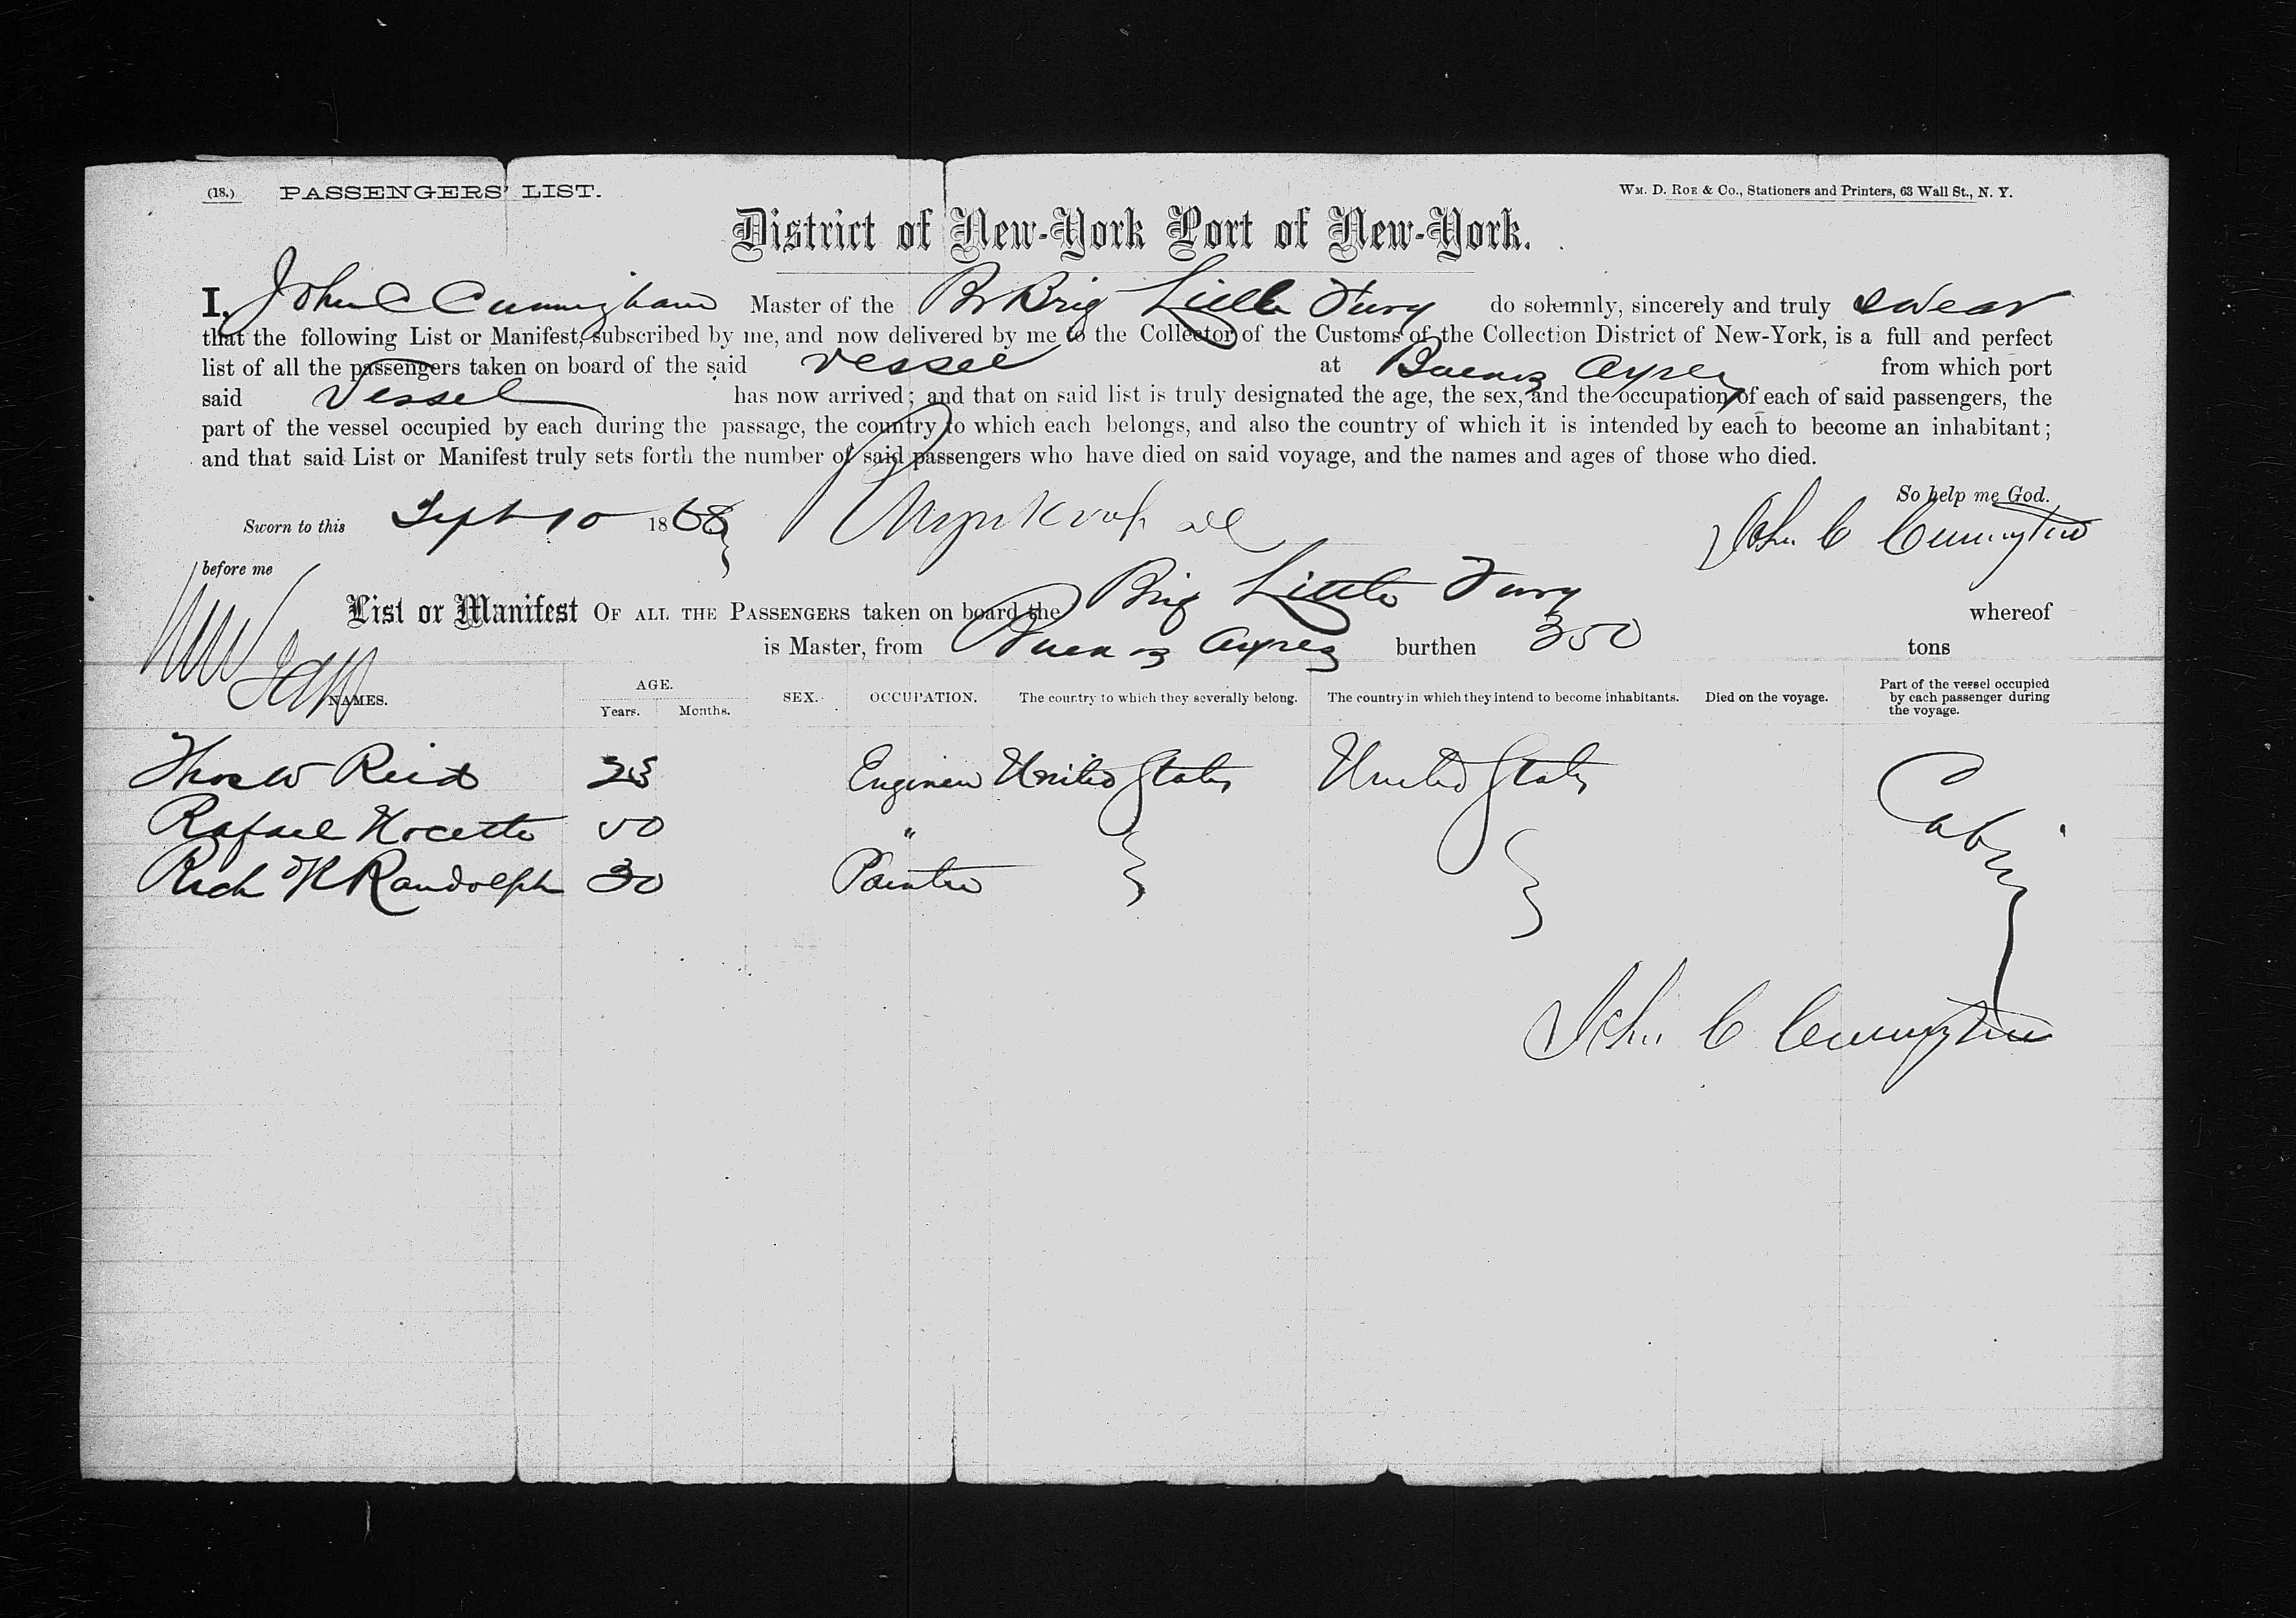 (18.) PASSENGERS' LIST.
WM. D. ROE & CO., Stationers and Printers, 63 Wall St., N. Y.
District of New-York Port of New-York.
I, John C Cunningham Master of the Br Brig Little Fury do solemnly, sincerely and truly swear
that the following List or Manifest, subscribed by me, and now delivered by me to the Collector of the Customs of the Collection District of New-York, is a full and perfect
list of all the passengers taken on board of the said vessel at Buenos Ayres from which port
said Vessel has now arrived; and that on said list is truly designated the age, the sex, and the occupation of each of said passengers, the
part of the vessel occupied by each during the passage, the country to which each belongs, and also the country of which it is intended by each to become an inhabitant;
and that said List or Manifest truly sets forth the number of said passengers who have died on said voyage, and the names and ages of those who died.
So help me God.
Sworn to this Sept 10 1868
John C Cunningham
before me
List or Manifest OF ALL THE PASSENGERS taken on board the Brig Little Fury whereof
is Master, from Buenos Ayres burthen 350 tons
NAMES. AGE. Years. Months. SEX. OCCUPATION. The country to which they severally belong. The country in which they intend to become inhabitants. Died on the voyage. Part of the vessel occupied by each passenger during the voyage.
Thos W Reid Engineer United States United States Cabin
Rafael 50 "
Rich K Randolph 30 Painter
John C Cunningham